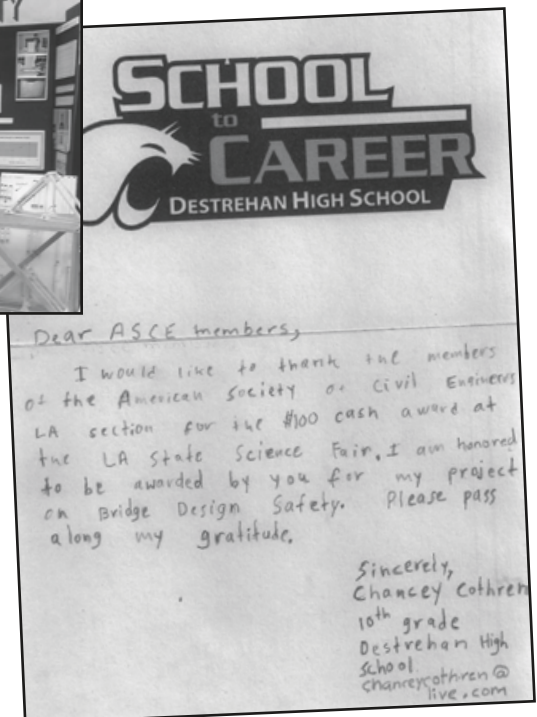 SCHOOL
to
CAREER
DESTREHAN HIGH SCHOOL
Dear ASCE members,
I would like to thank the members
of the American Society of Civil Engineers
LA section for the $100 cash award at
the LA State Science Fair. I am honored
to be awarded by you for my project
on Bridge Design Safety. Please pass
along my gratitude.
Sincerely,
Chancey Cothren
10th grade
Destrehan High
School
chanceycothren@
live.com